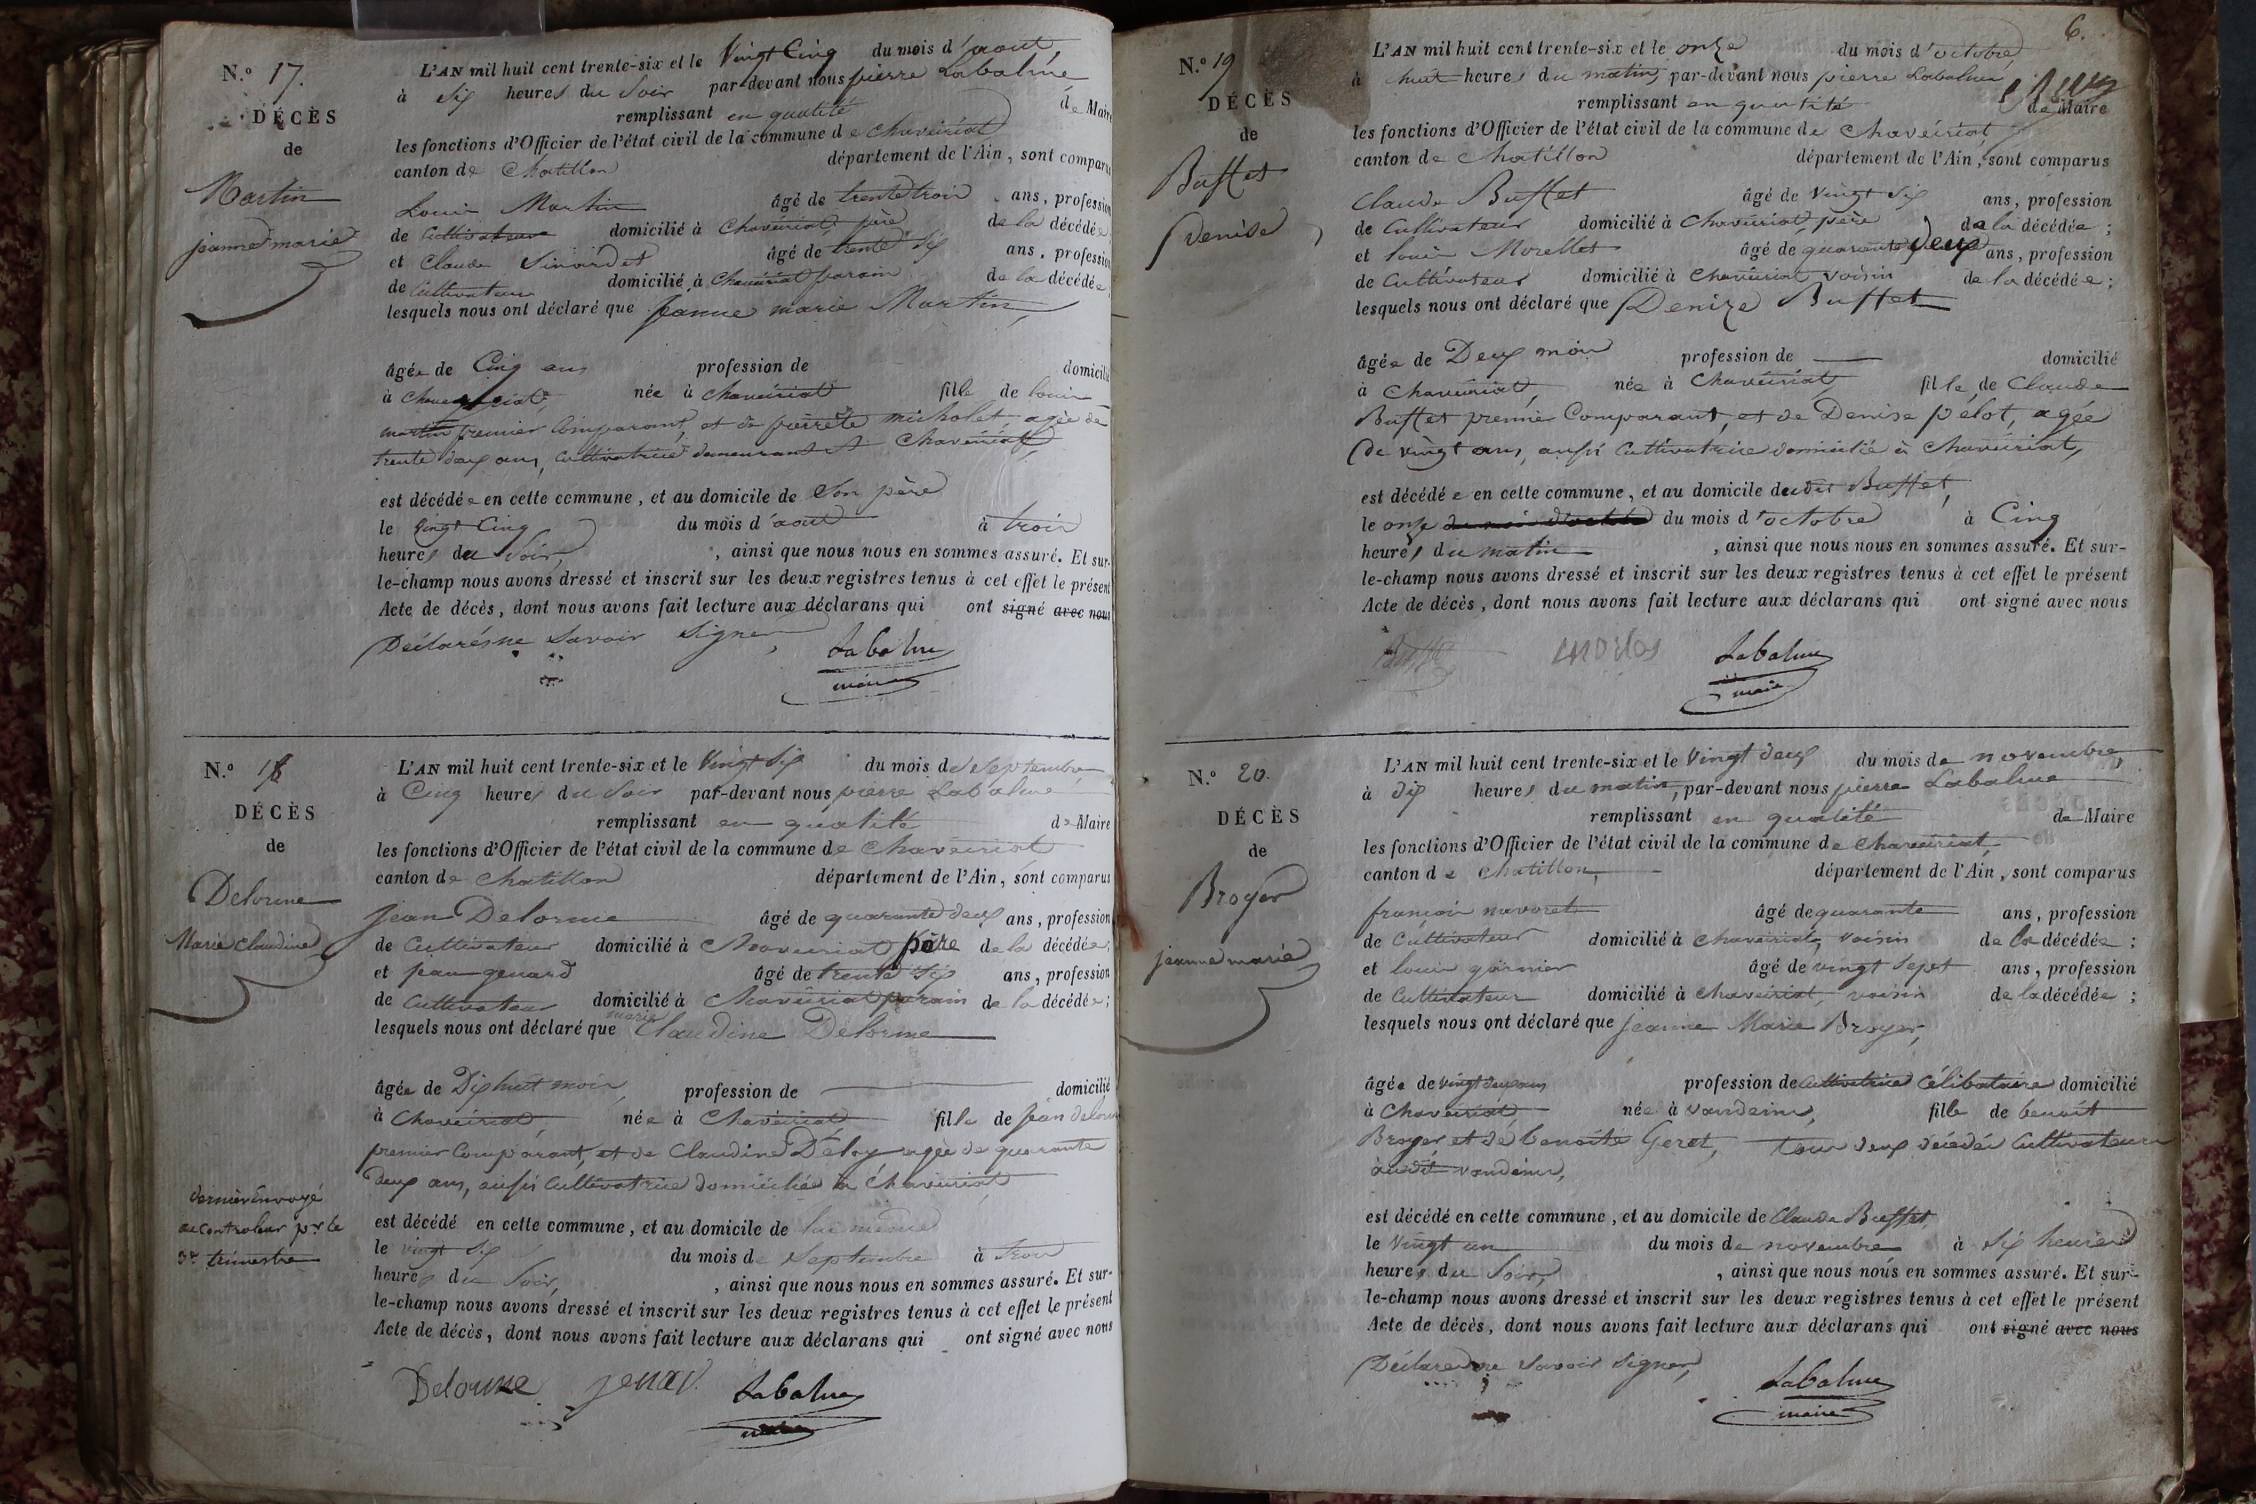 N.º 17.
DÉCÈS
de
Martin
jeanne marie
L'AN mil huit cent trente-six et le vingt Cinq du mois d'aout,
à Six heures du Soir par-devant nous pierre Labalme
remplissant en qualité de Maire
les fonctions d'Officier de l'état civil de la commune de Chaveiriat
canton de Chatillon département de l'Ain, sont comparus
Louis Martin âgé de trente trois ans, profession
de Cultivateur domicilié à Chaveiriat, père de la décédée
et Claude Sinardet âgé de trente Six ans, profession
de Cultivateur domicilié à Chaveiriat parain de la décédée
lesquels nous ont déclaré que jeanne marie Martin,
âgée de Cinq ans profession de domicilié
à Chaveiriat, née à Chaveiriat fille de louis
martin premier Comparant, et de pierrete micholet, agée de
trente deux ans, Cultivatrice demeurant à Chaveiriat,
est décédée en cette commune, et au domicile de Son père
le vingt Cinq du mois d'aout à trois
heures du Soir, , ainsi que nous nous en sommes assuré. Et sur-
le-champ nous avons dressé et inscrit sur les deux registres tenus à cet effet le présent
Acte de décès, dont nous avons fait lecture aux déclarans qui ont signé avec nous
Déclarés ne Savoir Signer,
Labalme
maire
N.º 18
DÉCÈS
de
Delorme
Marie Claudine
dernier Envoyé
au controleur pr le
3e trimestre
L'AN mil huit cent trente-six et le Vingt Six du mois de Septembre
à Cinq heures du Soir par-devant nous pierre Labalme
remplissant en qualité de Maire
les fonctions d'Officier de l'état civil de la commune de Chaveiriat
canton de Chatillon département de l'Ain, sont comparus
Jean Delorme âgé de quarante deux ans, profession
de Cultivateur domicilié à Chaveiriat père de la décédée,
et jean genard âgé de trente Six ans, profession
de Cultivateur domicilié à Chaveiriat parain de la décédée;
lesquels nous ont déclaré que marie Claudine Delorme
âgée de Dix huit mois, profession de domicilié
à Chaveiriat, née à Chaveiriat fille de Jean delorme
premier Comparant, et de Claudine Déloy agée de quarante
deux ans, aussi Cultivatrice domiciliée à Chaveiriat
est décédé en cette commune, et au domicile de lui même
le vingt Six du mois de Septembre à trois
heures du Soir, , ainsi que nous nous en sommes assuré. Et sur-
le-champ nous avons dressé et inscrit sur les deux registres tenus à cet effet le présent
Acte de décès, dont nous avons fait lecture aux déclarans qui ont signé avec nous
Delorme jenar Labalme
maire
6.
N.º 19
DÉCÈS
de
Buffet
Denise
L'AN mil huit cent trente-six et le onze du mois d'octobre,
à huit heures du matin, par-devant nous pierre Labalme
remplissant en qualité de Maire
les fonctions d'Officier de l'état civil de la commune de Chaveiriat
canton de Chatillon département de l'Ain, sont comparus
Claude Buffet âgé de vingt Six ans, profession
de Cultivateur domicilié à Chaveiriat, père de la décédée;
et louis Morellet âgé de quarante deux ans, profession
de Cultivateur domicilié à Chaveiriat voisin de la décédée;
lesquels nous ont déclaré que Denize Buffet
âgée de Deux mois profession de domicilié
à Chaveiriat, née à Chaveiriat, fille de Claude
Buffet premier Comparant, et de Denise pélot, agée
de vingt ans, aussi Cultivatrice domicilié à Chaveiriat,
est décédée en cette commune, et au domicile dudit Buffet,
le onze du mois d'octobre du mois d'octobre à Cinq
heures du matin , ainsi que nous nous en sommes assuré. Et sur-
le-champ nous avons dressé et inscrit sur les deux registres tenus à cet effet le présent
Acte de décès, dont nous avons fait lecture aux déclarans qui ont signé avec nous
Labalme
maire
N.º 20.
DÉCÈS
de
Broyer
jeanne marie
L'AN mil huit cent trente-six et le Vingt deux du mois de novembre,
à dix heures du matin, par-devant nous pierre Labalme
remplissant en qualité de Maire
les fonctions d'Officier de l'état civil de la commune de Chaveiriat
canton de Chatillon, département de l'Ain, sont comparus
françois navoret âgé de quarante ans, profession
de Cultivateur domicilié à Chaveiriat, voisin de la décédée;
et louis garnier âgé de vingt Sept ans, profession
de Cultivateur domicilié à Chaveiriat, voisin de la décédée;
lesquels nous ont déclaré que Jeanne Marie Broyer,
âgée de vingt deux ans profession de Cultivatrice Célibataire domicilié
à Chaveiriat, née à vandeins, fille de benoit
Broyer, et de benoite Geret, tous deux décédés Cultivateurs
audit vandeins,
est décédé en cette commune, et au domicile de Claude Buffet,
le Vingt un du mois de novembre à Six heures
heures du Soir, , ainsi que nous nous en sommes assuré. Et sur-
le-champ nous avons dressé et inscrit sur les deux registres tenus à cet effet le présent
Acte de décès, dont nous avons fait lecture aux déclarans qui ont signé avec nous
Déclaré ne Savoir Signer,
Labalme
maire